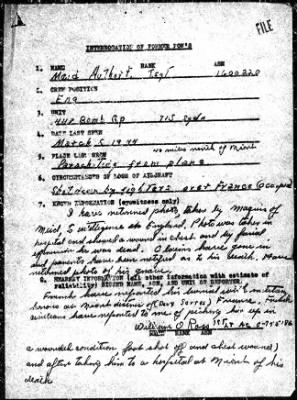 FILE
INTERROGATION OF FORMER POW'S
1. NAME RANK ASN
Maid Authert, Sgt
2. CREW POSITION
Eng
3. UNIT
448 Bomb Gp 715 Sqdn
4. DATE LAST SEEN
March 5 1944
5. PLACE LAST SEEN
miles north of Niort
Parachuting from plane
6. CIRCUMSTANCES OF LOSS OF AIRCRAFT
Shot down by fighters over France
7. KNOWN INFORMATION (eyewitness only)
I have returned photo taken by Maquis of
Maid, S intelligence in England, Photo was taken in
hospital and showed a wound in chest and by facial
he was dead. have gone in
and parents have been notified as to his death. Have
returned photo of his grave.
8. HEARSAY INFORMATION (all other information with estimate of
reliability) NAME, ASN, AND UNIT OF REPORTER.
French have reported his burial with military
honors at Niort district of (Deux Sevres) France. French
civilians have reported to me of picking him up in
William O Ross 1st Lt AC
a wounded condition (foot shot off and chest wound)
and after taking him to a hospital at Niort of his
death